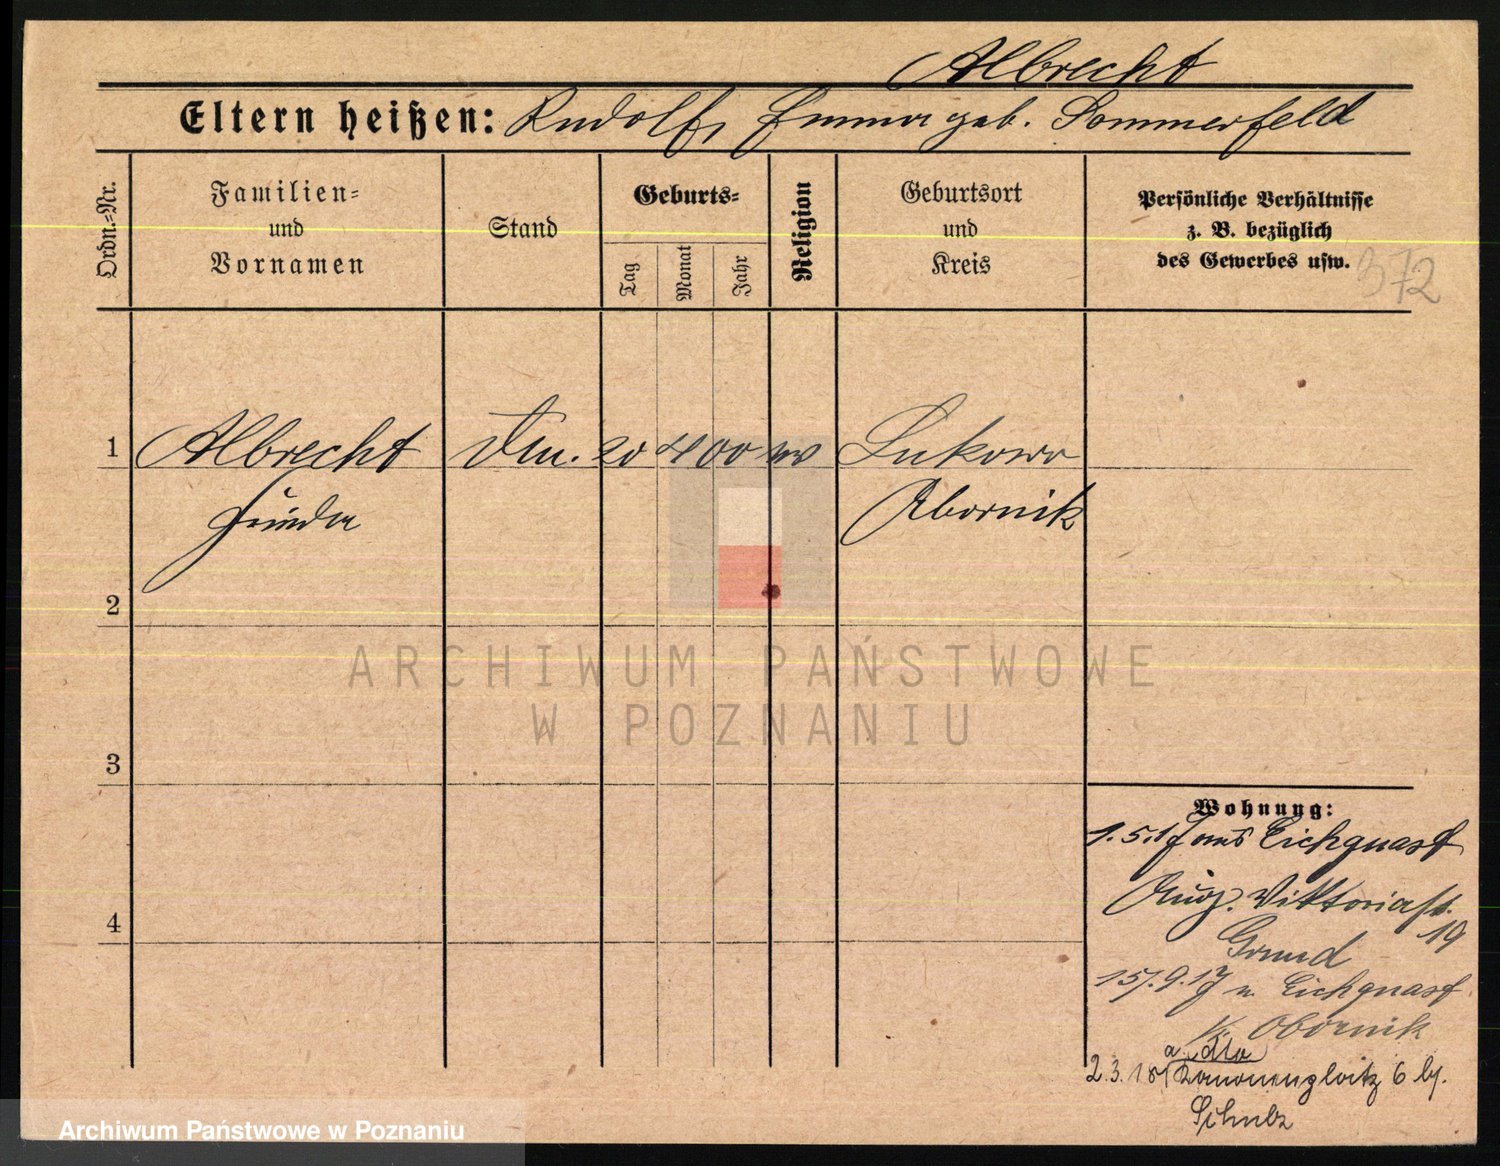 Albrecht
Eltern heißen: Rudolf, Emma geb. Sommerfeld
Ordn.-Nr.
Familien-
und
Vornamen
Stand
Geburts-
Tag
Monat
Jahr
Religion
Geburtsort
und
Kreis
Persönliche Verhältnisse
z. B. bezüglich
des Gewerbes usw.
372
1
Albrecht
20 4 00
Lukowo
Obornik
2
3
4
Wohnung:
1.5.17 aus Eichquast
Aug. Viktoriastr.
19
Grund
15.9.17 n. Eichquast
K. Obornik
a. dto
2.3.18 Kanonenplatz 6 b.
Schulz
ARCHIWUM PAŃSTWOWE
W POZNANIU
Archiwum Państwowe w Poznaniu